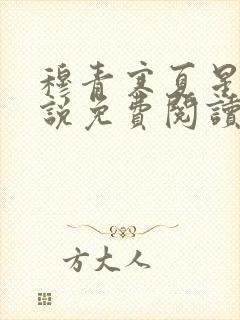 穆青寒夏星
說免費閱讀
方大人